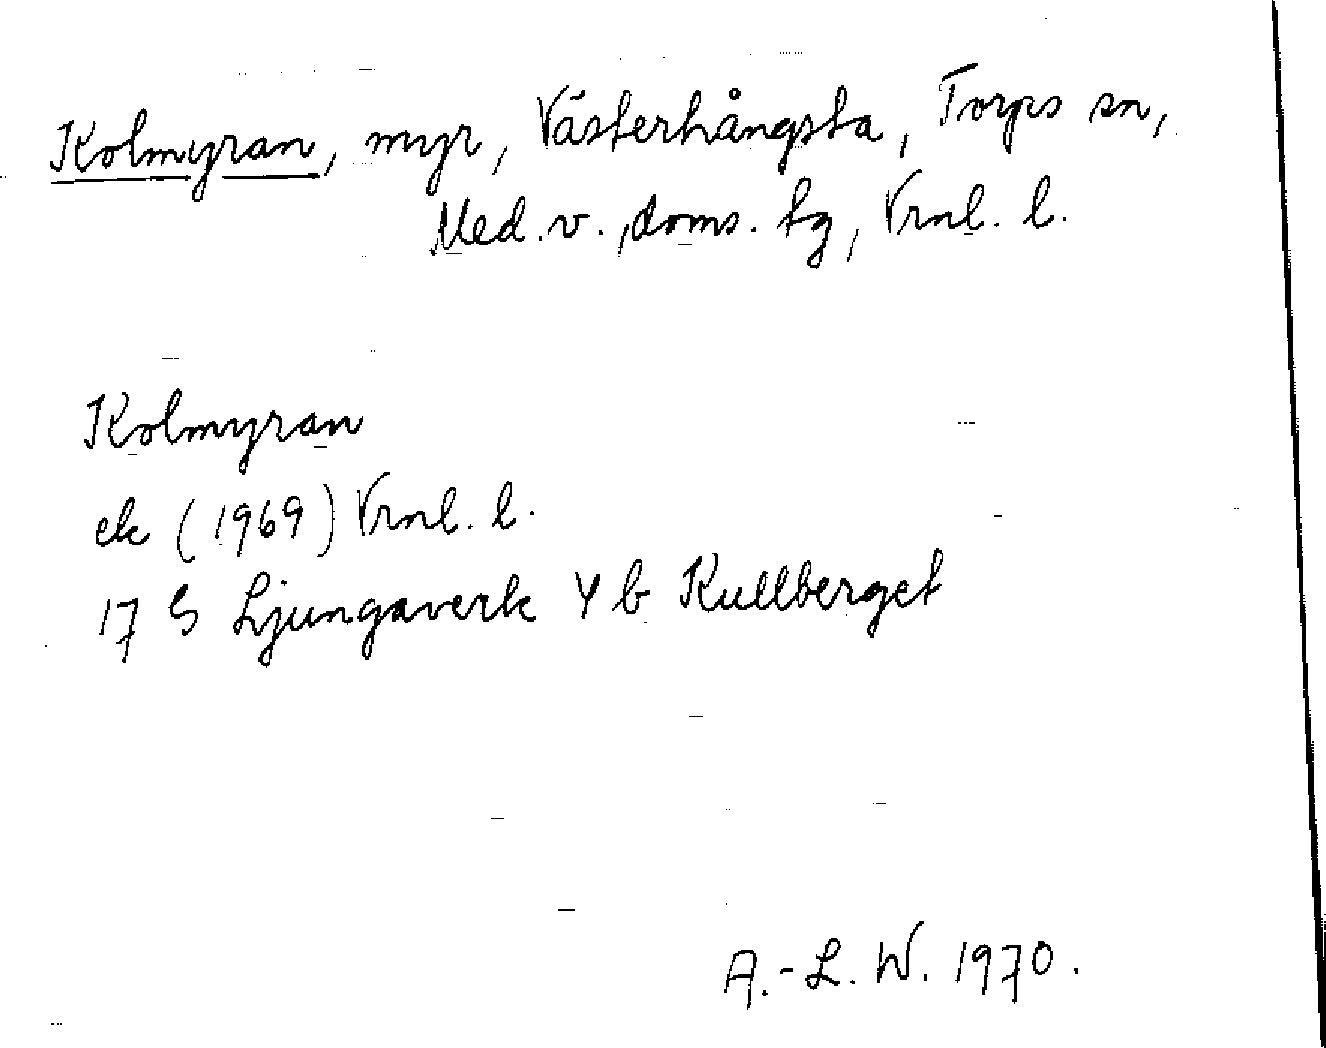 Kolmyran, myr, Västerhångsta, Torps sn,
Med.v., doms. tg, Vrnl. l.
Kolmyran
ek (1969) Vrnl. l.
17 G Ljungaverk Y b Kullberget
A.-L. W. 1970.